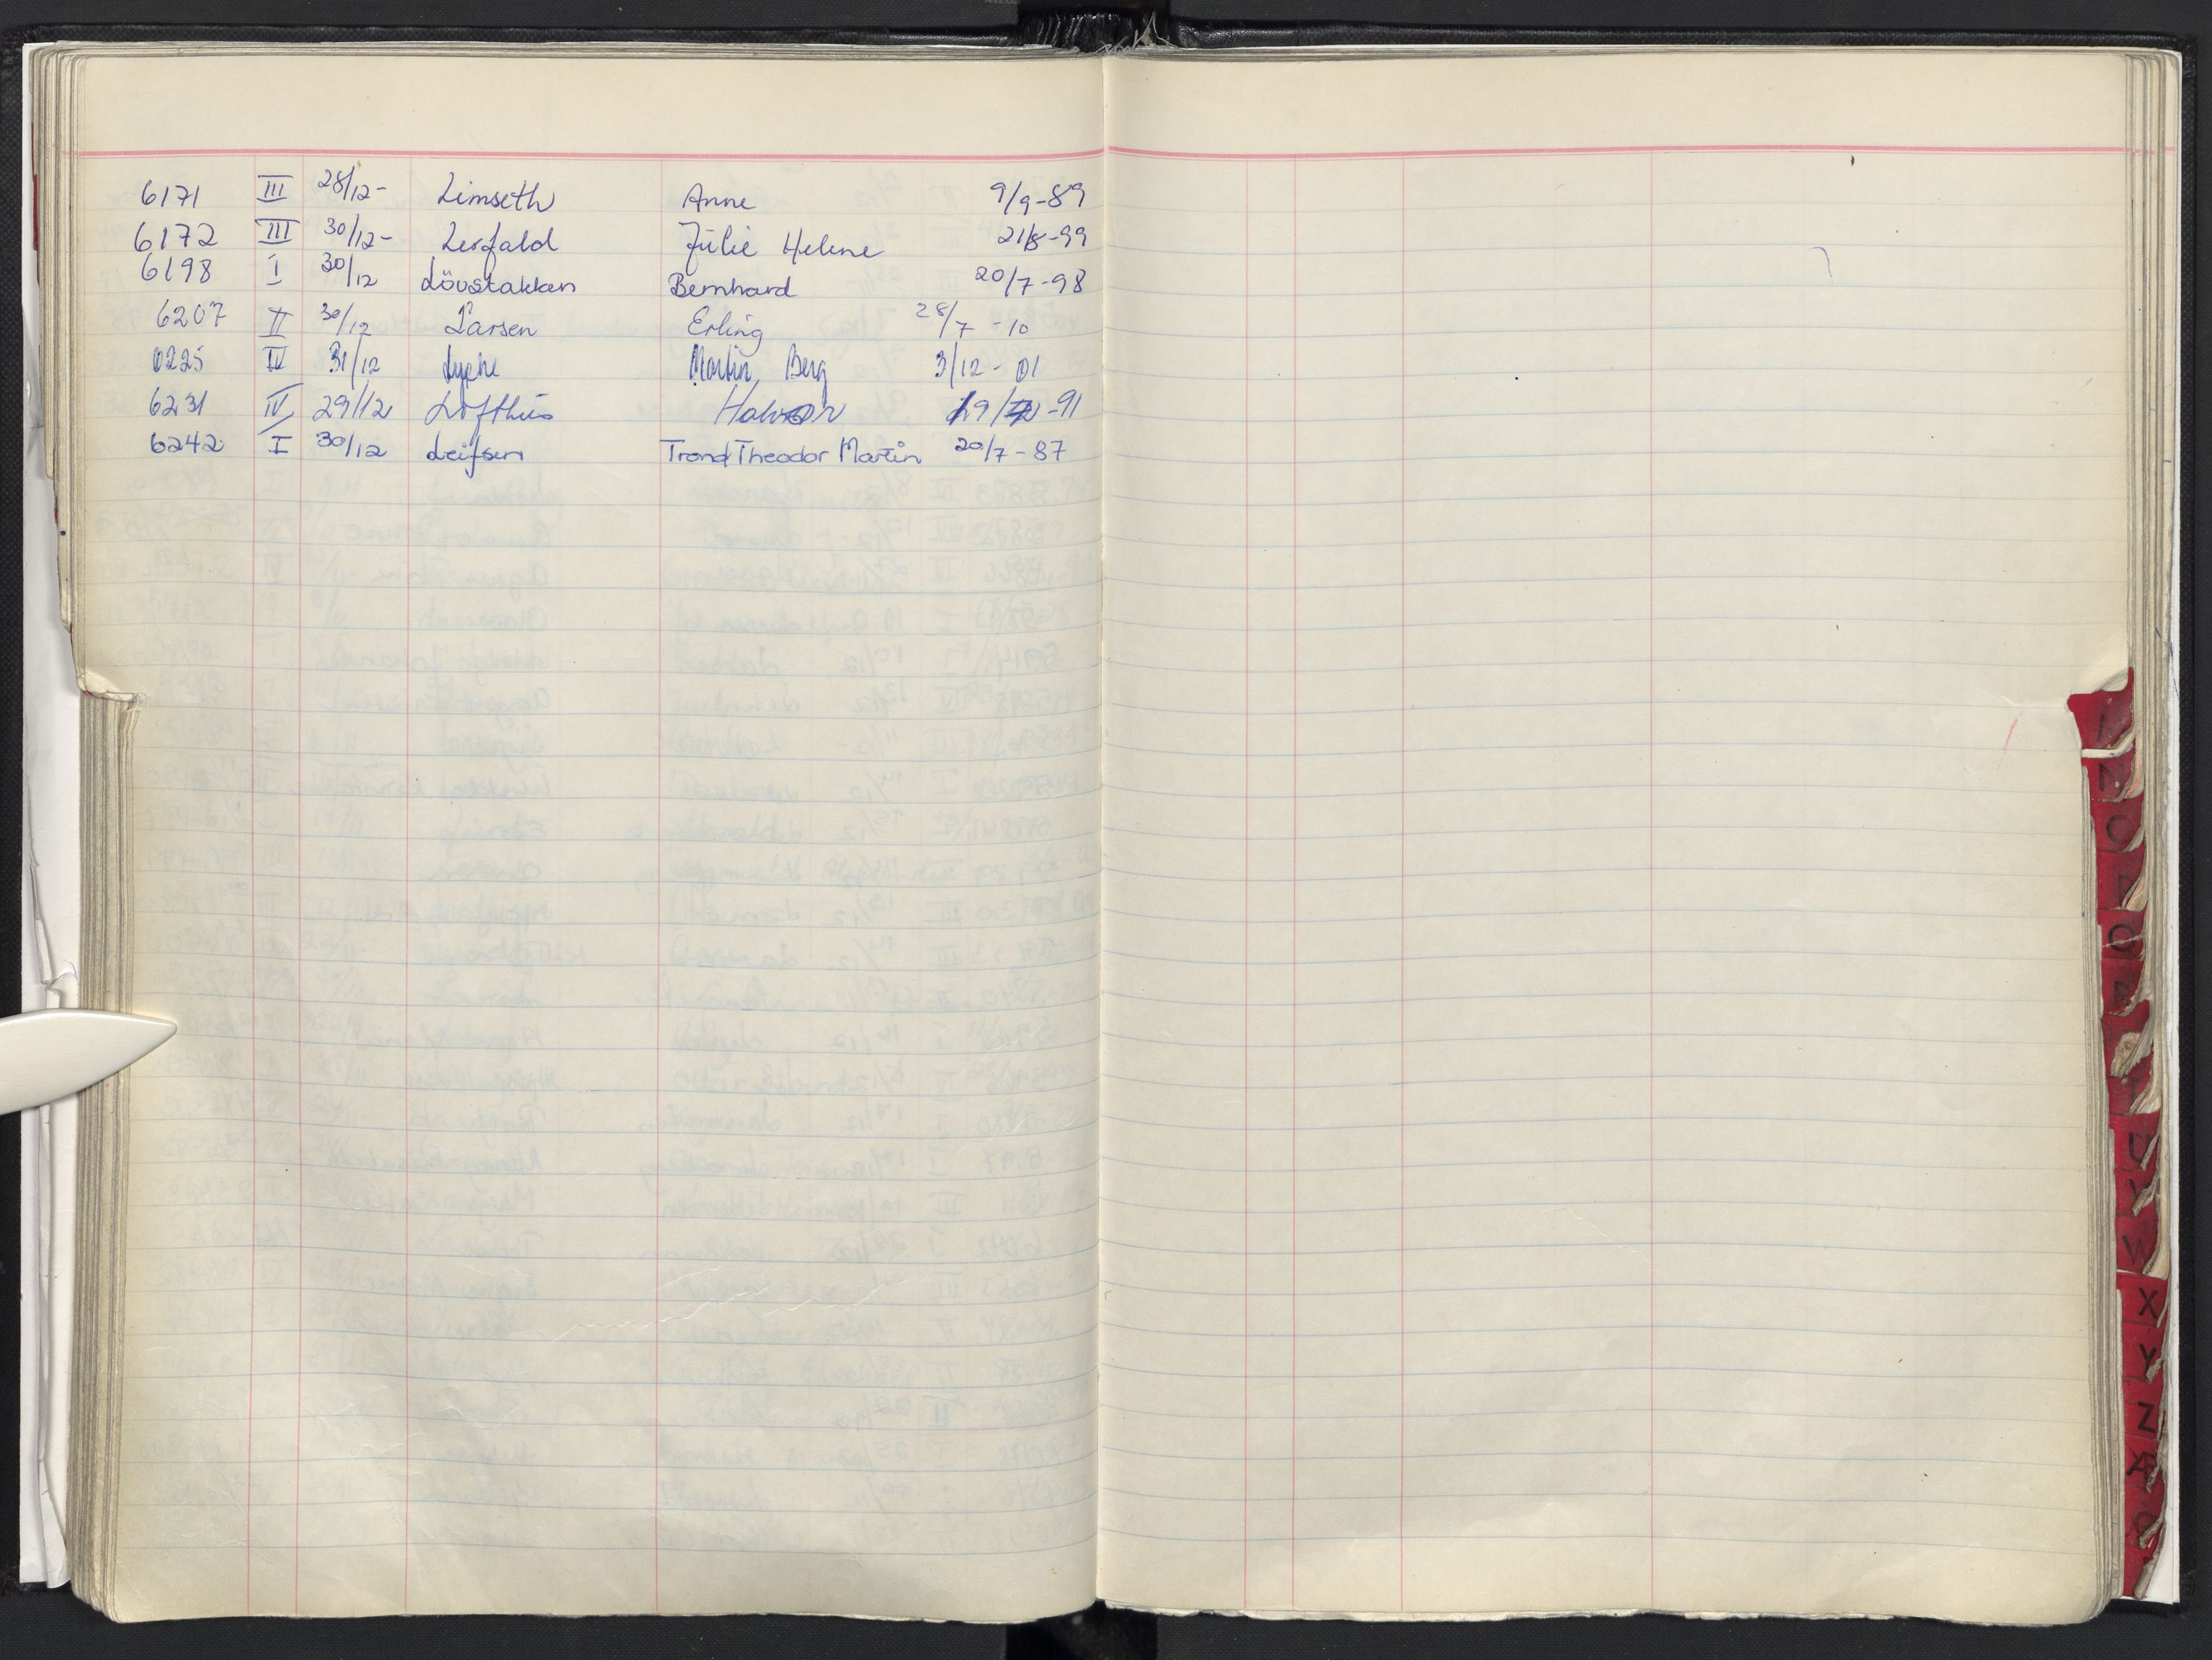 6171 III 28/12- Limseth Anne 9/9-89
6172 III 30/12- Lerfald Julie Helene 21/8-99
6198 I 30/12 Lövstakken Bernhard 20/7-98
6207 II 30/12 Larsen Erling 28/7-10
0225 IV 31/12 Lyche Martin Berg 3/12-01
6231 IV 29/12 Lofthus Halvor 19/ -91
6242 I 30/12 Leifsen Trond Theodor Martin 20/7-87
N
O
P
Q
R
T
U
V
W
X
Y
Z
Æ
Ø